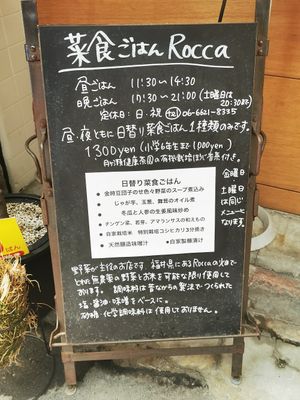 菜食ごはん Rocca
昼ごはん 11:30〜14:30
晩ごはん 17:30〜21:00 (土曜日は20:30まで)
定休日:日・祝 ☎06-6621-8335
昼・夜ともに日替り菜食ごはん1種類のみです。
1300yen (小学6年生まで1,000yen)
日替り菜食ごはん
● 金時豆団子のせ色々野菜のスープ煮込み
● じゃが芋、玉葱、舞茸のオイル煮
● 冬瓜と人参の生姜風味炒め
● チンゲン菜、若芽、アマランサスの和えもの
● 自家栽培米 特別栽培コシヒカリ3分搗き
● 天然醸造味噌汁 ●自家製糠漬け
金曜日
土曜日
は同じ
メニューと
なります
野菜が主役のお店です。福井県にあるRoccaの畑で
とれた無農薬の野菜とお米を可能な限り使用して
おります。調味料は昔ながらの製法でつくられた
塩・醤油・味噌をベースに。
砂糖・化学調味料は使用しておりません。
ごはん